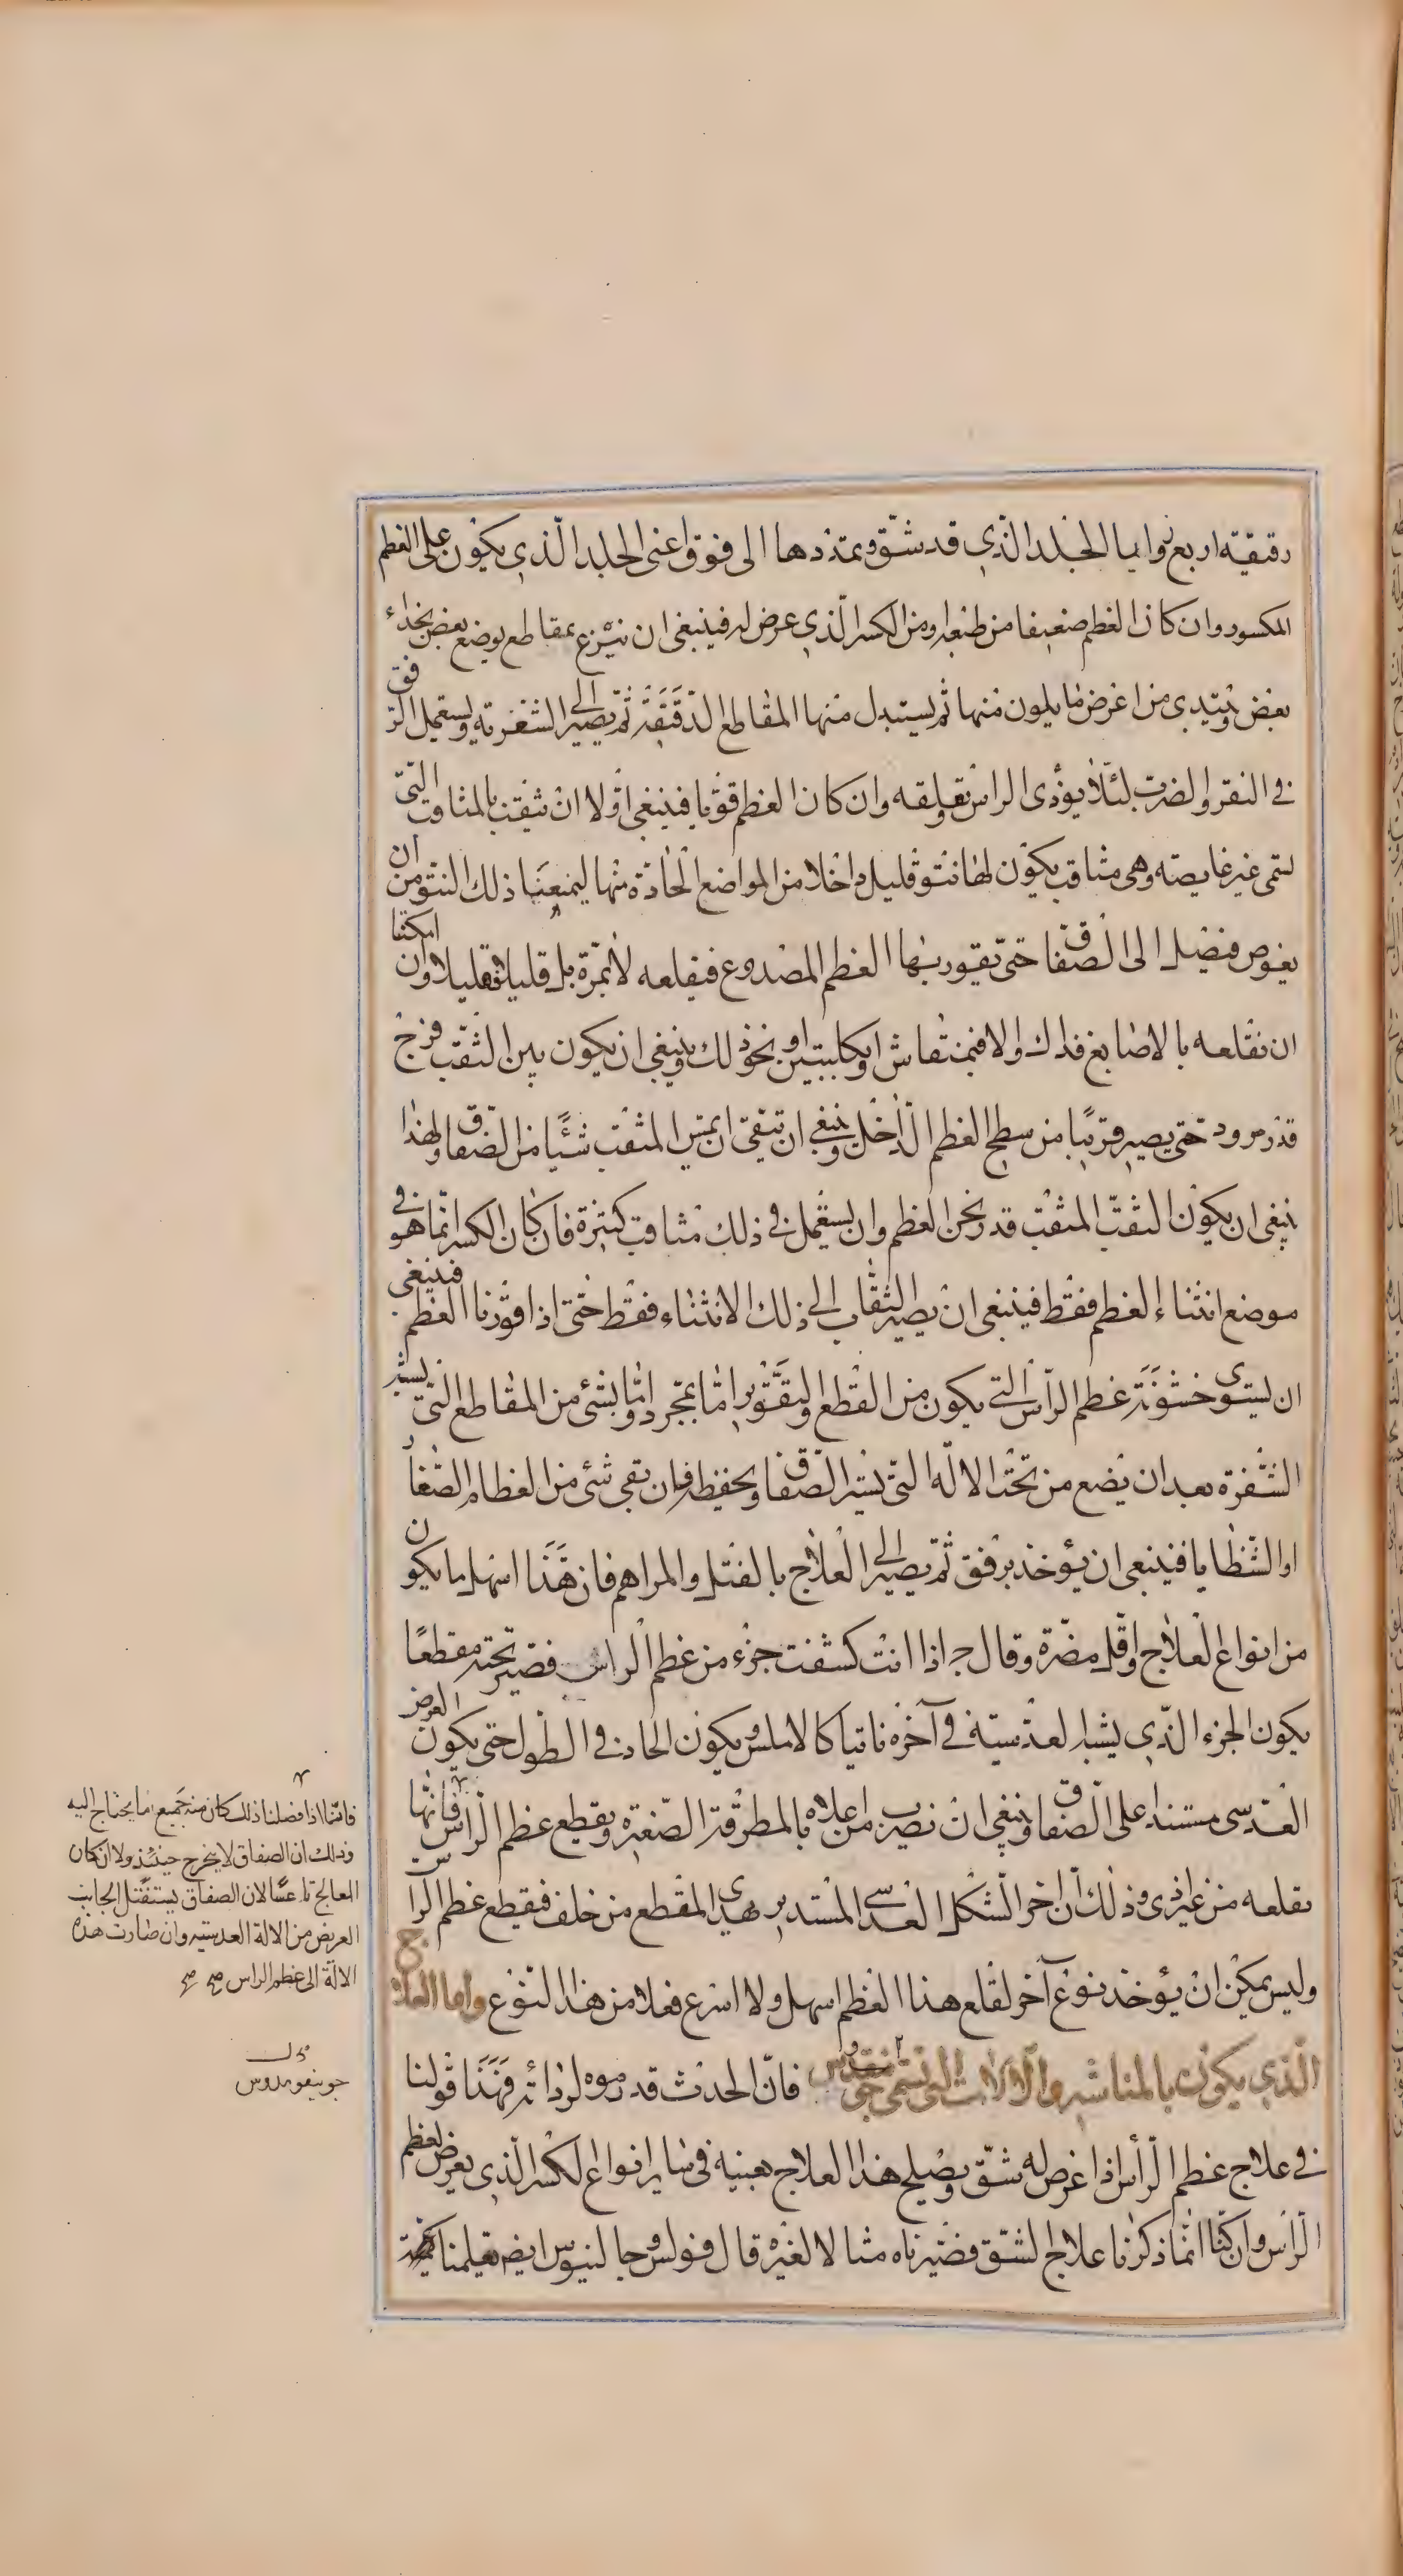 دقيقة اربع زوايا الجلد الذي قد شق ويمتددها الى فوق اعنى الجلد الذي يكون على العظم
المكسور وان كان العظم ضعيفا من طبعه او من الكسر الذي عرض له فينبغى ان ينزع بمقاطع يوضع بعض بحذاء
بعض ويبتدى من اعرض ما يكون منها ثم يستبدل منها المقاطع الدقيقة ثم يصير الى الشعرية ويستعمل الرفق
في النقر والضرب لئلا يؤذى الراس ويقلقه وان كان العظم قويا فينبغى اولا ان يثقب بالمثاقب التى
تسمى غير غايصة وهى مثاقب يكون لها نتو قليل داخلا من المواضع الحادة منها ليمنعها ذلك النتو من ان
يغوص فيصل الى الصفاق حتى يقور بها العظم المصدوع فيقلعه لا بمرة بل قليلا فقليلا وان امكننا
ان نقلعه بالاصابع فذاك والا فبمنقاش او كلبتين او بنحو ذلك وينبغي ان يكون بين الثقب فرج
قدر مرود حتى يصير قريبا من سطح العظم الداخل وينبغى ان يتقى ان يمس المثقب شيئا من الصفاق ولهذا
ينبغى ان يكون الثقب المثقب قدر ثخن العظم وان يستعمل في ذلك مثاقب كثيرة فان كان الكسر انما هو في
موضع انثناء العظم فقط فينبغى ان يصير الثقاب الى ذلك الانثناء فقط حتى اذا قورنا العظم فينبغى
ان يستوى خشونة عظم الراس التي يكون من القطع والتقوير اما بمجرد واما بشئ من المقاطع التى تشبه
الشفرة بعد ان يضع من تحت الالة التى يستر الصفاق ويحفظه فان بقى شئ من العظام الصغار
او الشظايا فينبغى ان يؤخذ برفق ثم يصير الى العلاج بالفتل والمراهم فان هذا اسهل ما يكون
من انواع العلاج واقل مضرة وقال ج اذا انت كشفت جزء من عظم الراس فصير تحته مقطعا
يكون الجزء الذي يشبه العدسية في آخره ناتيا كالاملس ويكون الحاد في الطول حتى يكون العرض
العدسى مستندا على الصفاق وينبغى ان نضرب من اعلاه بالمطرقة الصغيرة ويقطع عظم الراس فانها
نقلعه من غير اذى وذلك ان اخر الشكل العدسى المستدير يهدى المقطع من خلف فيقطع عظم الراس
وليس يمكن ان يؤخذ نوع آخر لقلع هذا العظم اسهل ولا اسرع فعلا من هذا النوع واما العلاج
الذي يكون بالمناشير والالات التى تسمى فان الحدث قد ذموه لرداءته فهذا قولنا
في علاج عظم الراس اذا عرض له شق ويصلح هذا العلاج بعينه في ساير انواع الكسر الذى يعرض لعظم
الراس وان كنا انما ذكرنا علاج الشق فصيرناه مثالا لغيره قال فولس وجالينوس ايضا يعلمنا كمية
فانما اذا فصلنا ذلك كان منه جميع ما يحتاج اليه
وذلك ان الصفاق لا يخرج حينئذ ولا ان كان
المعالج ناعسا لان الصفاق يستقبل الجانب
العريض من الالة العدسيه وان صارت هذه
الالة الى عظم الراس صح صح
جوينقومدوس